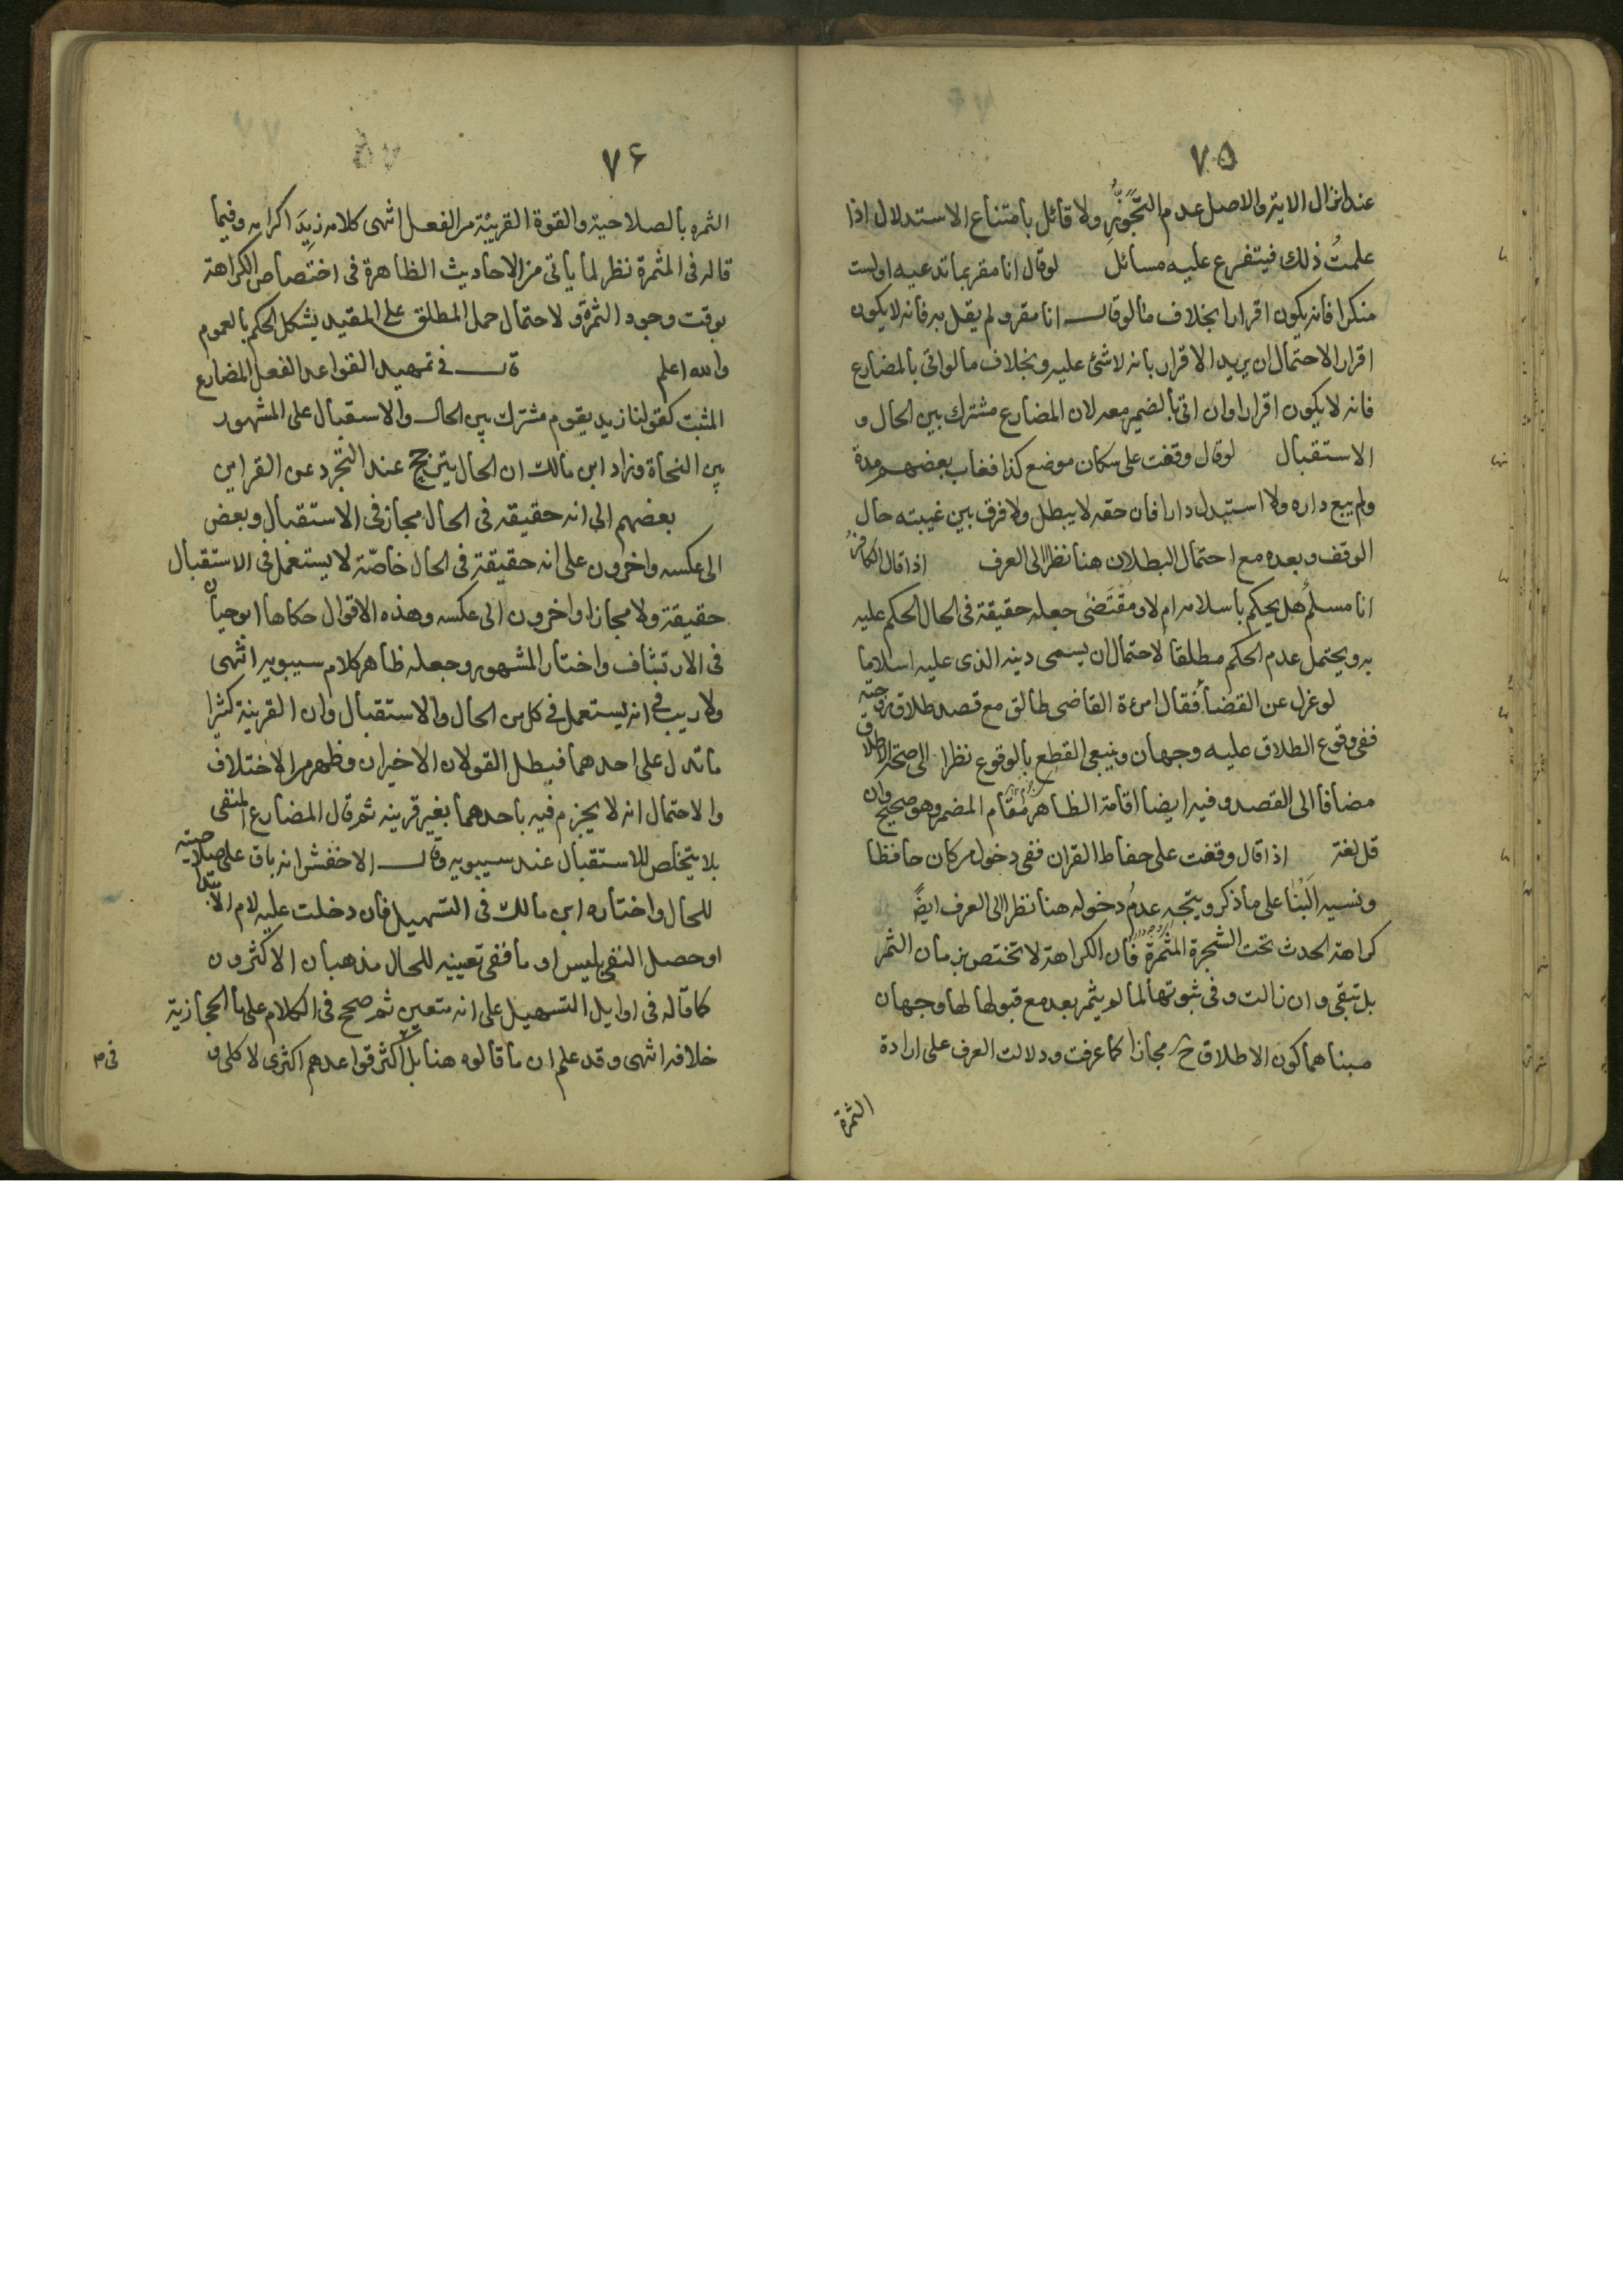 ٧٥
عند انزال الاية والاصل عدم التجوز ولا قائل بامتناع الاستدلال اذا
علمت ذلك فيتفرع عليه مسائل لو قال انا مقر بما تدعيه او لست
منكرا فانه يكون اقرارا بخلاف ما لو قال انا مقر ولم يقل به فانه لا يكون
اقرارا لاحتمال ان يريد الاقرار بانه لا شئ عليه وبخلاف ما لو اتى بالمضارع
فانه لا يكون اقرارا وان اتى بالضمير معه لان المضارع مشترك بين الحال و
الاستقبال لو قال وقفت على سكان موضع كذا فغاب بعضهم مدة
ولم يبع داره ولا استبدل دارا فان حقه لا يبطل ولا فرق بين غيبته حال
الوقف وبعده مع احتمال البطلان هنا نظرا الى العرف اذا قال الكافر
انا مسلم هل يحكم باسلامه ام لا ومقتضى جعله حقيقة في الحال الحكم عليه
به ويحتمل عدم الحكم مطلقا لاحتمال ان يسمى دينه الذى عليه اسلاما
لو عزل عن القضا فقال امرءة القاضى طالق مع قصد طلاق زوجته
ففى وقوع الطلاق عليه وجهان وينبغى القطع بالوقوع نظرا الى صحة الاطلاق
مضافا الى القصد وفيه ايضا اقامة الظاهر مقام المضمر وهو صحيح وان
قل لغة اذا قال وقفت على حفاظ القران ففى دخول من كان حافظا
ونسيه البنا على ما ذكر ويتجه عدم دخوله هنا نظرا الى العرف ايضً
كراهة الحدث تحت الشجرة المثمرة فان الكراهة لا تختص بزمان الثمر
بل تبقى وان زالت وفى ثبوتها لما لو يثمر بعد مع قبولها لها وجهان
مبناهما كون الاطلاق ح مجازا كما عرفت ودلالت العرف على ارادة
الثمرة
٧۶
الثمره بالصلاحية والقوة القريبة من الفعل انتهى كلامه زيد اكرامه وفيما
قاله فى المثمرة نظر لما ياتى من الاحاديث الظاهرة فى اختصاص الكراهة
بوقت وجود الثمرة ولاحتمال حمل المطلق على المقيد يشكل الحكم بالعموم
والله اعلم قال في تمهيد القواعد الفعل المضارع
المثبت كقولنا زيد يقوم مشترك بين الحال والاستقبال على المشهور
بين النحاة وزاد ابن مالك ان الحال يترجح عند التجرد عن القراين
بعضهم الى انه حقيقه فى الحال مجاز فى الاستقبال وبعض
الى عكسه واخرون على انه حقيقة فى الحال خاصّة لا يستعمل فى الاستقبال
حقيقة ولا مجازا واخرون الى عكسه وهذه الاقوال حكاها ابو حيان
فى الارتشاف واختار المشهور وجعله ظاهر كلام سيبويه انتهى
ولا ريب في انه يستعمل في كل من الحال والاستقبال وان القرينة كثيرا
ما تدل على احدهما فيبطل القولان الاخيران وظهر من الاختلاف
والاحتمال انه لا يجزم فيه باحدهما بغير قرينه ثم قال المضارع المنفى
بلا يتخلص للاستقبال عند سيبويه وقال الاخفش انه باق على صلاحيته
للحال واختاره ابن مالك فى التسهيل فان دخلت عليه لام الابتدا
او حصل النفى بليس او ما ففى تعيينه للحال مذهبان الاكثرون
كما قاله فى اوايل التسهيل على انه متعين ثم صحح فى الكلام على ما الحجازية
خلافه انتهى وقد علم ان ما قالوه هنا بل اكثر قواعدهم اكثرى لا كلى و